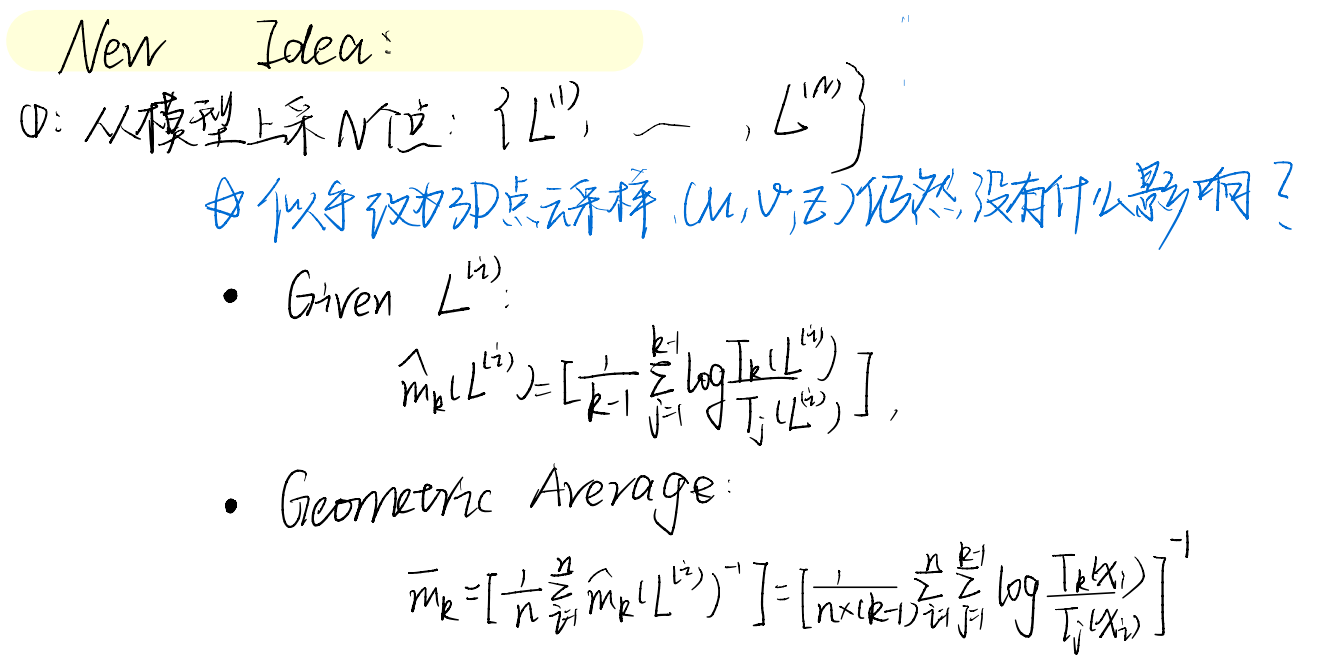 New Idea:
①: 从模型上采N个点: {L^{(1)}, ⋯, L^{(N)}}
☆ 似乎改为3D点云采样 (u,v,z) 仍然没有什么影响?
• Given L^{(i)}:
\hat{m}_k(L^{(i)}) = [\frac{1}{k-1} \sum_{j=1}^{k-1} log \frac{T_k(L^{(i)})}{T_j(L^{(i)})}],
• Geometric Average:
\bar{m}_k = [\frac{1}{n} \sum_{i=1}^{n} \hat{m}_k(L^{(i)})^{-1}] = [\frac{1}{n×(k-1)} \sum_{i=1}^{n} \sum_{j=1}^{k-1} log \frac{T_k(x_i)}{T_j(x_i)}]^{-1}